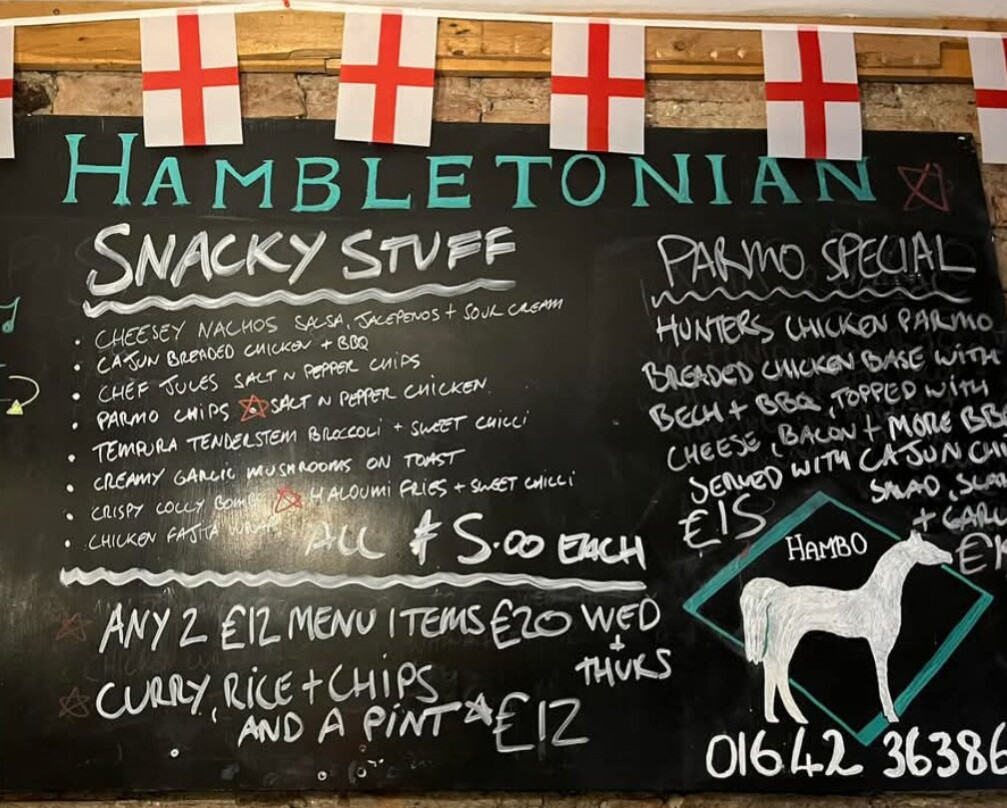 HAMBLETONIAN
SNACKY STUFF
• CHEESEY NACHOS SALSA, JACEPENOS + SOUR CREAM
• CAJUN BREADED CHICKEN + BBQ
• CHEF JULES SALT N PEPPER CHIPS
• PARMO CHIPS ☆ SALT N PEPPER CHICKEN
• TEMPURA TENDERSTEM BROCCOLI + SWEET CHILLI
• CREAMY GARLIC MUSHROOMS ON TOAST
• CRISPY COLLY BOMBS ☆ HALOUMI FRIES + SWEET CHILLI
• CHICKEN FAJITA
ALL £5.00 EACH
☆ ANY 2 £12 MENU ITEMS £20 WED
+
THURS
☆ CURRY, RICE + CHIPS
AND A PINT ☆ £12
PARMO SPECIAL
HUNTERS CHICKEN PARMO
BREADED CHICKEN BASE WITH
BECH + BBQ, TOPPED WITH
CHEESE, BACON + MORE BB
SERVED WITH CAJUN CHI
SALAD, SLA
+ GAR
£15
HAMBO
01642 36386